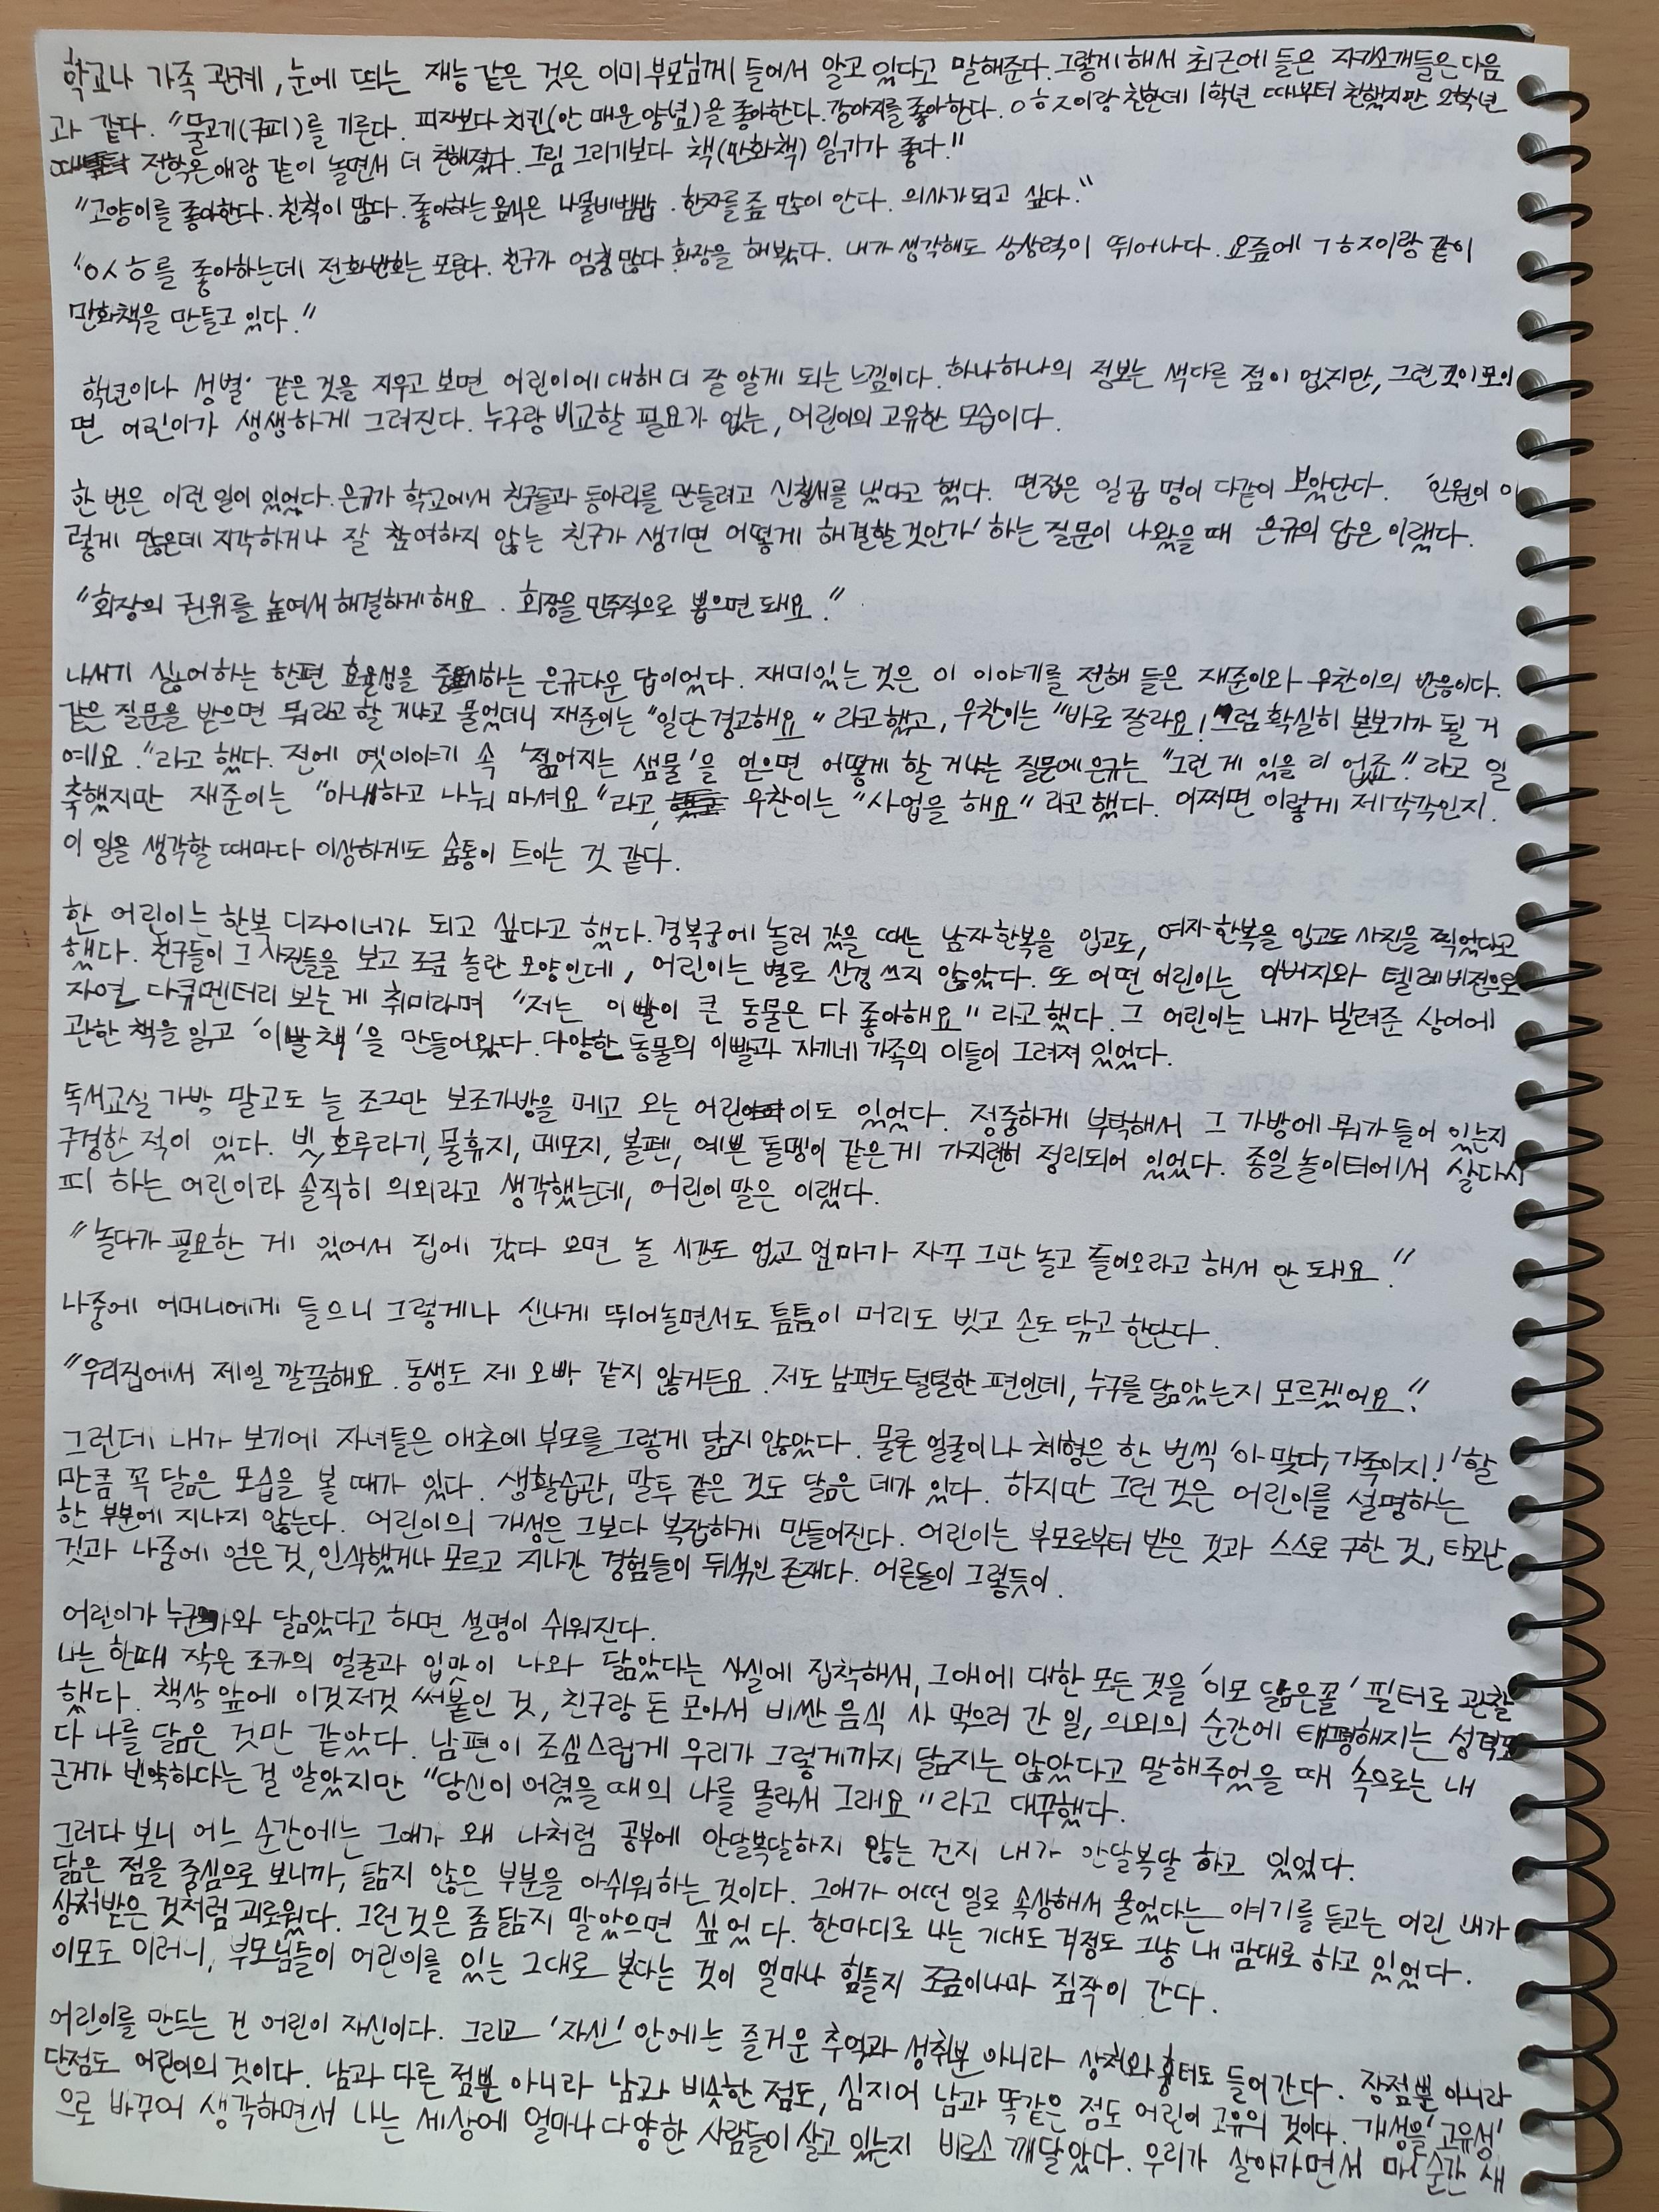 학교나 가족 관계, 눈에 띄는 재능 같은 것은 이미 부모님께 들어서 알고 있다고 말해준다. 그렇게 해서 최근에 들은 자기소개들은 다음
과 같다. "물고기(구피)를 기른다. 피자보다 치킨(안 매운 양념)을 좋아한다. 강아지를 좋아한다. ㅇㅎㅈ이랑 친한데 1학년 때부터 친했지만 2학년
전학온 애랑 같이 놀면서 더 친해졌다. 그림 그리기보다 책(만화책) 읽기가 좋다."
"고양이를 좋아한다. 친척이 많다. 좋아하는 음식은 나물비빔밥. 한자를 좀 많이 안다. 의사가 되고 싶다."
"ㅇㅅㅎ를 좋아하는데 전화번호는 모른다. 친구가 엄청 많다. 화장을 해봤다. 내가 생각해도 상상력이 뛰어나다. 요즘에 ㄱㅎㅈ이랑 같이
만화책을 만들고 있다."
학년이나 성별 같은 것을 지우고 보면 어린이에 대해 더 잘 알게 되는 느낌이다. 하나하나의 정보는 색다른 점이 없지만, 그런 것이 모이
면 어린이가 생생하게 그려진다. 누구랑 비교할 필요가 없는, 어린이의 고유한 모습이다.
한 번은 이런 일이 있었다. 은규가 학교에서 친구들과 동아리를 만들려고 신청서를 냈다고 했다. 면접은 일곱 명이 다같이 보았단다. '인원이 이
렇게 많은데 지각하거나 잘 참여하지 않는 친구가 생기면 어떻게 해결할 것인가' 하는 질문이 나왔을 때 은규의 답은 이랬다.
"회장의 권위를 높여서 해결하게 해요. 회장을 민주적으로 뽑으면 돼요."
나서기 싫어하는 한편 효율성을 중시하는 은규다운 답이었다. 재미있는 것은 이 이야기를 전해 들은 재준이와 우찬이의 반응이다.
같은 질문을 받으면 뭐라고 할 거냐고 물었더니 재준이는 "일단 경고해요"라고 했고, 우찬이는 "바로 잘라요! 그럼 확실히 본보기가 될 거
예요."라고 했다. 전에 옛이야기 속 '젊어지는 샘물'을 얻으면 어떻게 할 거냐는 질문에 은규는 "그런 게 있을 리 없죠."라고 일
축했지만 재준이는 "아내하고 나눠 마셔요"라고, 우찬이는 "사업을 해요"라고 했다. 어쩌면 이렇게 제각각인지.
이 일을 생각할 때마다 이상하게도 숨통이 트이는 것 같다.
한 어린이는 한복 디자이너가 되고 싶다고 했다. 경복궁에 놀러 갔을 때는 남자 한복을 입고도, 여자 한복을 입고도 사진을 찍었다고
했다. 친구들이 그 사진들을 보고 조금 놀란 모양인데, 어린이는 별로 신경 쓰지 않았다. 또 어떤 어린이는 아버지와 텔레비전으로
자연 다큐멘터리 보는 게 취미라며 "저는 이빨이 큰 동물은 다 좋아해요"라고 했다. 그 어린이는 내가 빌려준 상어에
관한 책을 읽고 '이빨 책'을 만들어왔다. 다양한 동물의 이빨과 자기네 가족의 이들이 그려져 있었다.
독서교실 가방 말고도 늘 조그만 보조가방을 메고 오는 어린이도 있었다. 정중하게 부탁해서 그 가방에 뭐가 들어 있는지
구경한 적이 있다. 빗, 호루라기, 물휴지, 메모지, 볼펜, 예쁜 돌멩이 같은 게 가지런히 정리되어 있었다. 종일 놀이터에서 살다시
피 하는 어린이라 솔직히 의외라고 생각했는데, 어린이 말은 이랬다.
"놀다가 필요한 게 있어서 집에 갔다 오면 놀 시간도 없고 엄마가 자꾸 그만 놀고 들어오라고 해서 안 돼요."
나중에 어머니에게 들으니 그렇게나 신나게 뛰어놀면서도 틈틈이 머리도 빗고 손도 닦고 한단다.
"우리집에서 제일 깔끔해요. 동생도 제 오빠 같지 않거든요. 저도 남편도 털털한 편인데, 누구를 닮았는지 모르겠어요."
그런데 내가 보기에 자녀들은 애초에 부모를 그렇게 닮지 않았다. 물론 얼굴이나 체형은 한 번씩 '아 맞다, 가족이지!' 할
만큼 꼭 닮은 모습을 볼 때가 있다. 생활습관, 말투 같은 것도 닮은 데가 있다. 하지만 그런 것은 어린이를 설명하는
한 부분에 지나지 않는다. 어린이의 개성은 그보다 복잡하게 만들어진다. 어린이는 부모로부터 받은 것과 스스로 구한 것, 타고난
것과 나중에 얻은 것, 인식했거나 모르고 지나간 경험들이 뒤섞인 존재다. 어른들이 그렇듯이.
어린이가 누군가와 닮았다고 하면 설명이 쉬워진다.
나는 한때 작은 조카의 얼굴과 입맛이 나와 닮았다는 사실에 집착해서, 그애에 대한 모든 것을 '이모 닮은꼴' 필터로 관찰
했다. 책상 앞에 이것저것 써붙인 것, 친구랑 돈 모아서 비싼 음식 사 먹으러 간 일, 의외의 순간에 태평해지는 성격도
다 나를 닮은 것만 같았다. 남편이 조심스럽게 우리가 그렇게까지 닮지는 않았다고 말해주었을 때 속으로는 내
근거가 빈약하다는 걸 알았지만 "당신이 어렸을 때의 나를 몰라서 그래요"라고 대꾸했다.
그러다 보니 어느 순간에는 그애가 왜 나처럼 공부에 안달복달하지 않는 건지 내가 안달복달 하고 있었다.
닮은 점을 중심으로 보니까, 닮지 않은 부분을 아쉬워하는 것이다. 그애가 어떤 일로 속상해서 울었다는 얘기를 듣고는 어린 내가
상처받은 것처럼 괴로웠다. 그런 것은 좀 닮지 말았으면 싶었다. 한마디로 나는 기대도 걱정도 그냥 내 맘대로 하고 있었다.
이모도 이러니, 부모님들이 어린이를 있는 그대로 본다는 것이 얼마나 힘들지 조금이나마 짐작이 간다.
어린이를 만드는 건 어린이 자신이다. 그리고 '자신' 안에는 즐거운 추억과 성취뿐 아니라 상처와 흉터도 들어간다. 장점뿐 아니라
단점도 어린이의 것이다. 남과 다른 점뿐 아니라 남과 비슷한 점도, 심지어 남과 똑같은 점도 어린이 고유의 것이다. 개성을 '고유성'
으로 바꾸어 생각하면서 나는 세상에 얼마나 다양한 사람들이 살고 있는지 비로소 깨달았다. 우리가 살아가면서 매 순간 새